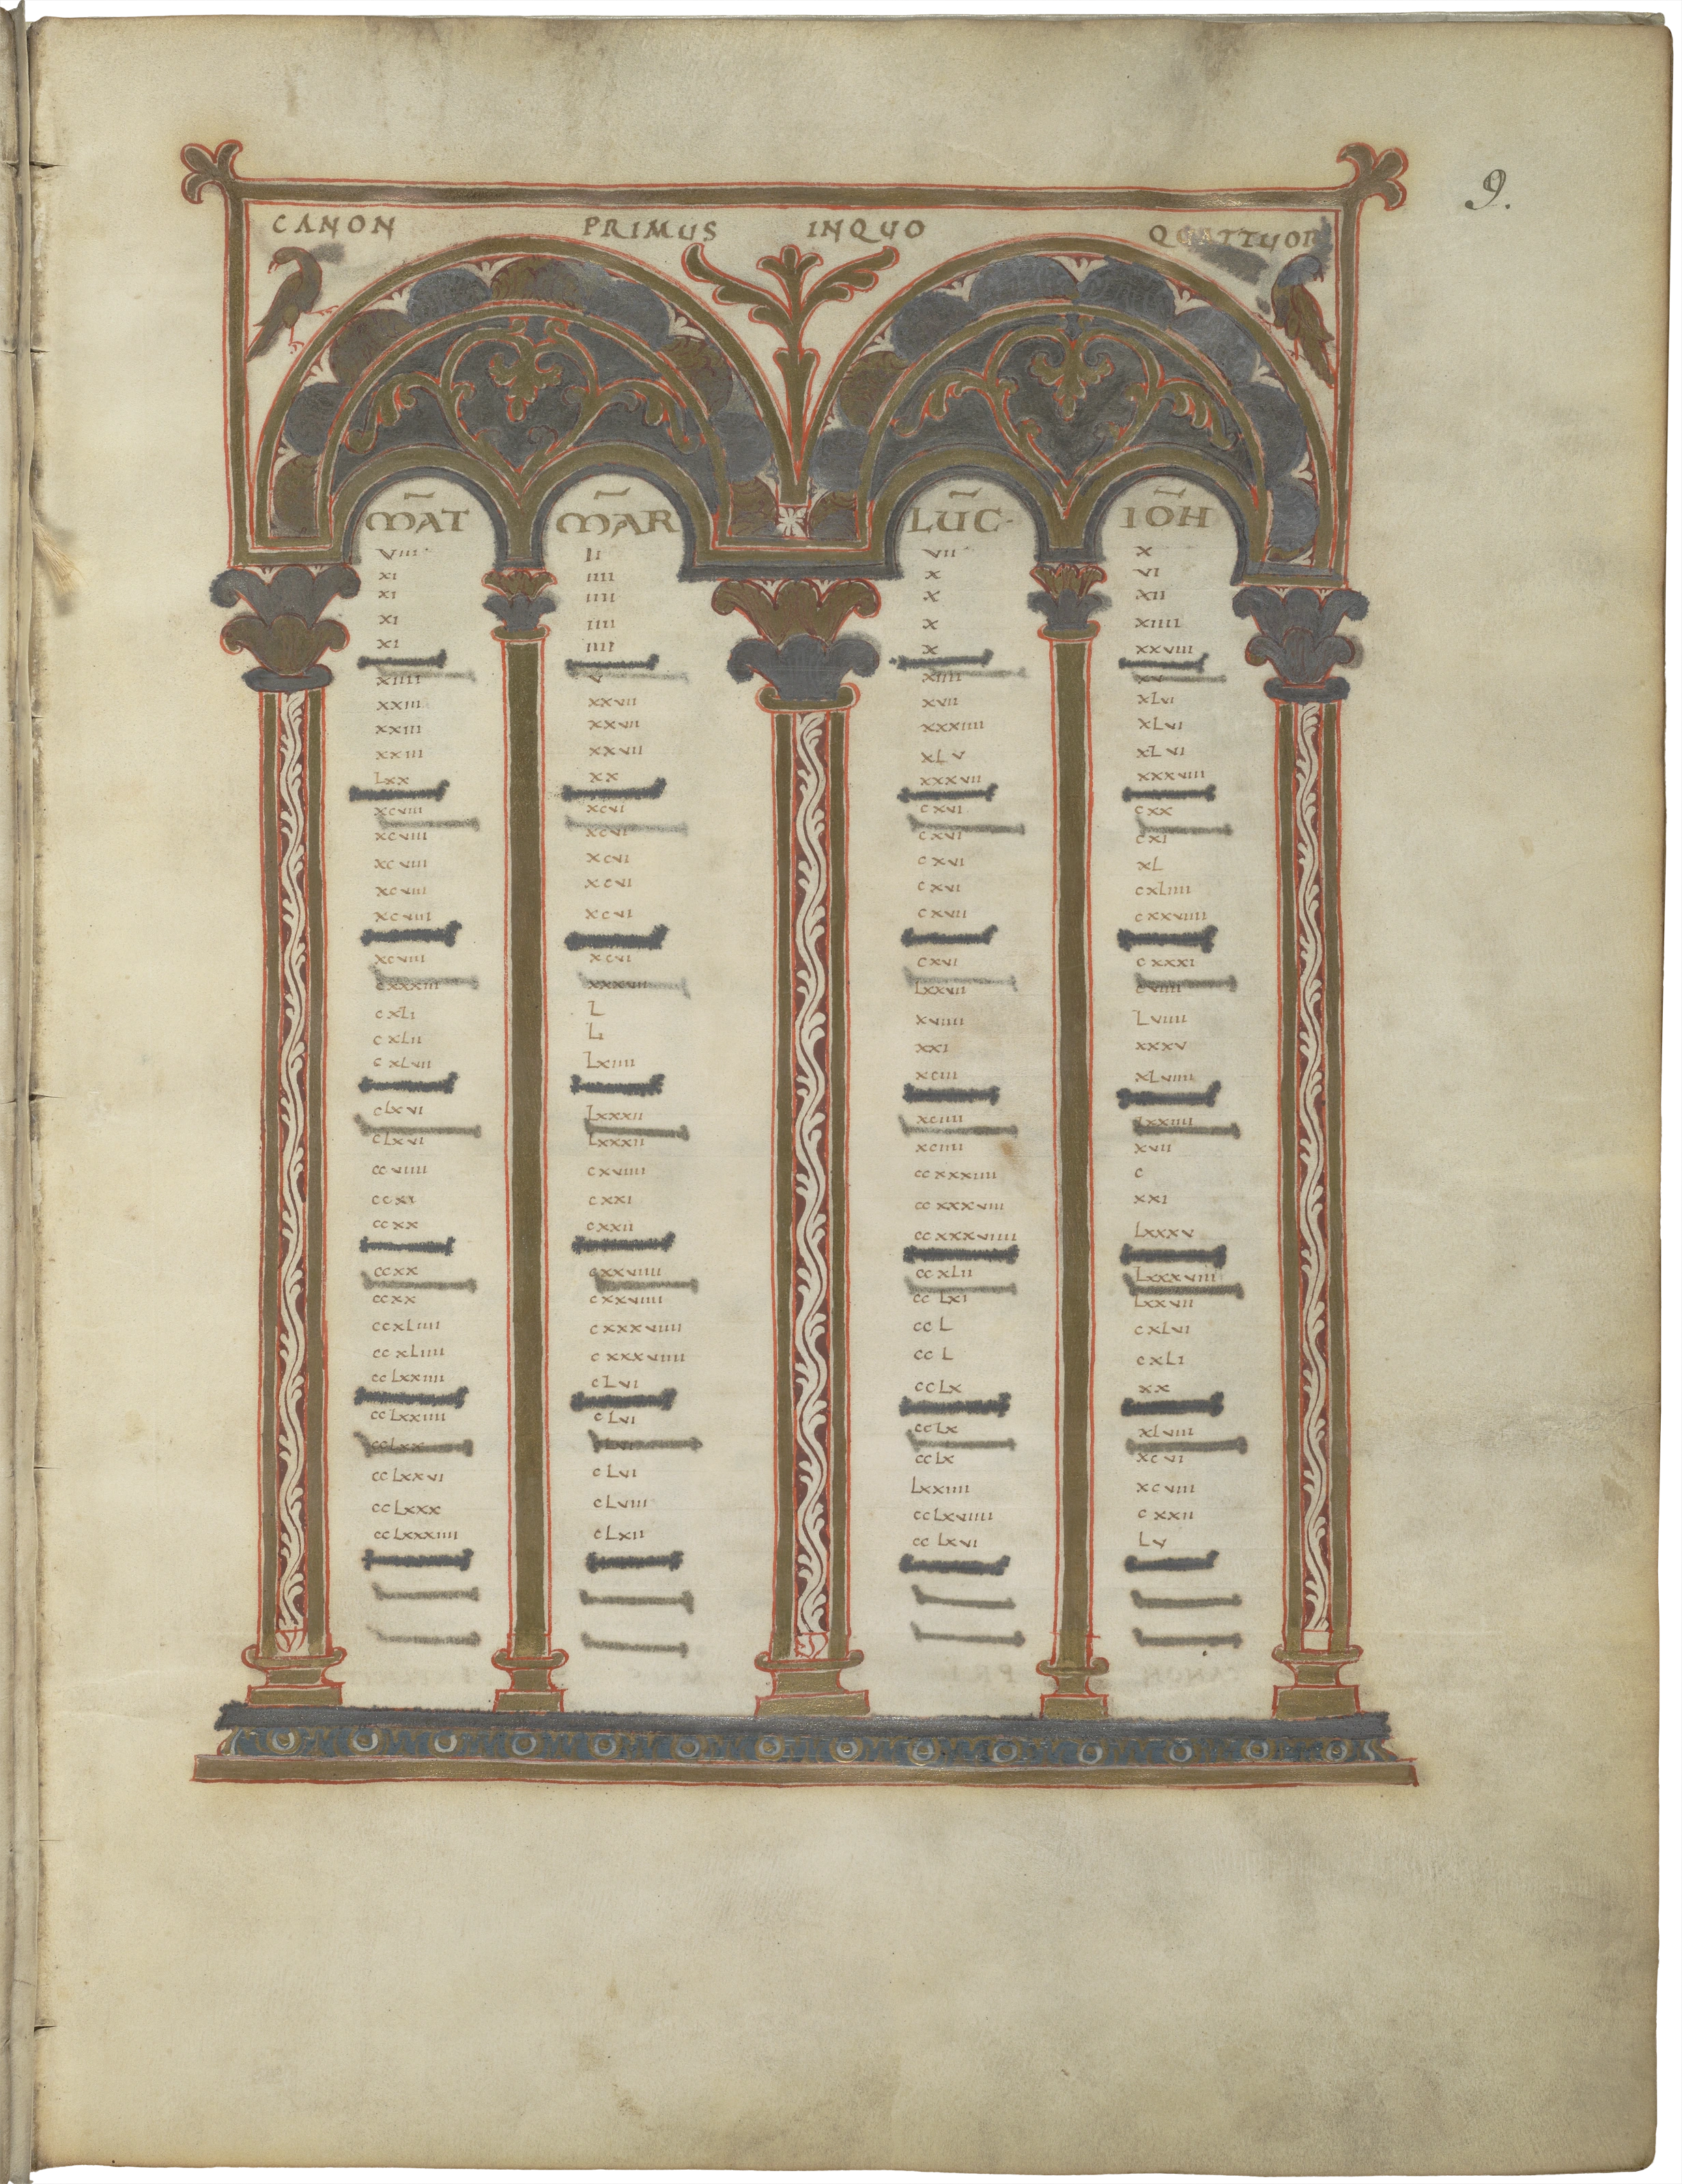 9.
CANON PRIMUS INQUO QUATTUOR
M̄AT M̄AR LŪC· IŌH
VIII II VII X
XI IIII X VI
XI IIII X XII
XI IIII X XIIII
XI IIII X XXVIII
XIIII V XIIII XV
XXIII XXVII XVII XLVI
XXIII XXVII XXXIIII XLVI
XXIII XXVII XLV XLVI
LXX XX XXXVII XXXVIII
XCVIII XCVI CXVI CXX
XCVIII XCVI CXVI CXI
XCVIII XCVI CXVI XL
XCVIII XCVI CXVI CXLIIII
XCVIII XCVI CXVII CXXVIIII
XCVIII XCVI CXVI CXXXI
CXXXIII XXXVII LXXVII CVIIII
CXLI L XVIIII LVIIII
CXLII LI XXI XXXV
CXLVII LXIIII XCIII XLVIIII
CLXVI LXXXII XCIIII LXXIIII
CLXVI LXXXII XCIIII XVII
CCVIIII CXVIIII CCXXXIIII C
CCXI CXXI CCXXXVIII XXI
CCXX CXXII CCXXXVIIII LXXXV
CCXX CXXVIIII CCXLII LXXXVIII
CCXX CXXVIIII CCLXI LXXVII
CCXLIIII CXXXVIIII CCL CXLVI
CCXLIIII CXXXVIIII CCL CXLI
CCLXXIIII CLVI CCLX XX
CCLXXIIII CLVI CCLX XLVIII
CCLXX CCLX XCVI
CCLXXVI CLVI LXXIIII XCVIII
CCLXXX CLVIII CCLXVIIII CXXII
CCLXXXIIII CLXII CCLXVI LV